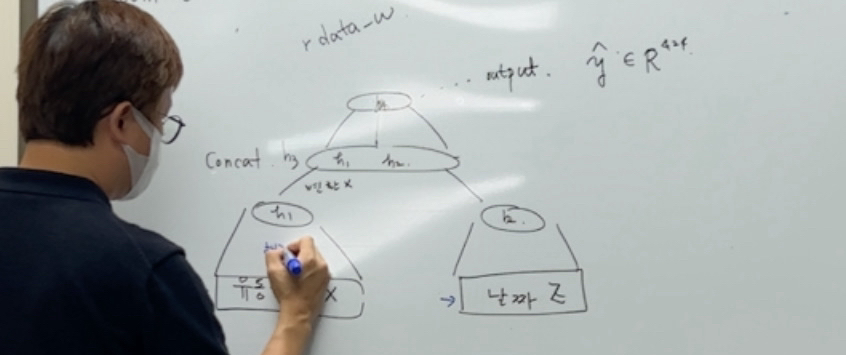 rdata_w
output. ŷ ∈ R⁴²⁴
Concat. h₃ h₁ h₂.
변환 x
h₁
h₂.
유동 X
→ 날짜 Z